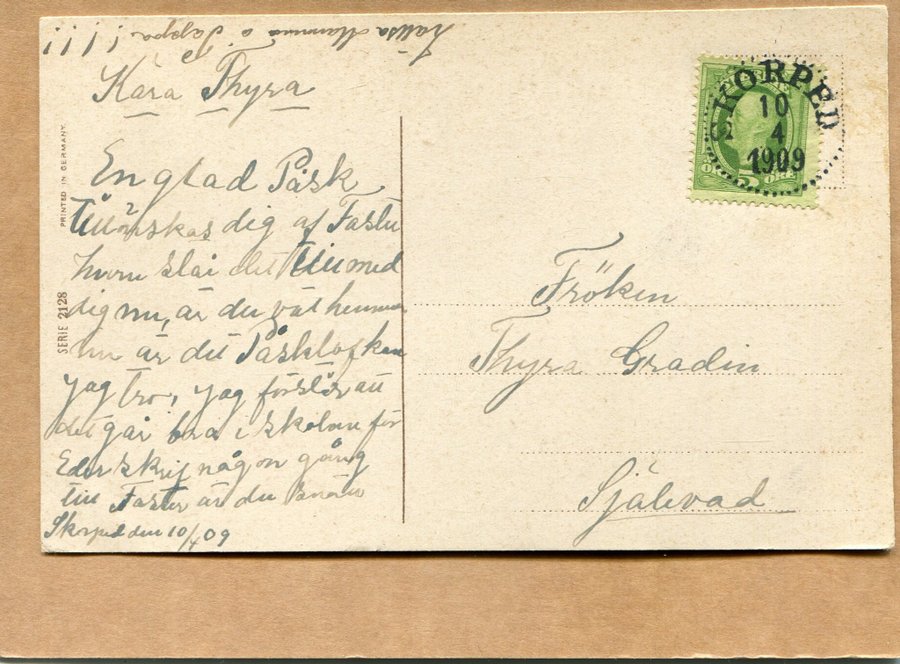 Hälsa Mamma o Pappa! ! ! ! !
Kära Thyra
En glad Påsk
tillönskas dig af Faster
hvem slår det till med
dig nu, är du väl hemma
nu är det Påsklof kan
jag tro, jag förstår att
det går bra i skolan för
Eder skrif någon gång
till Faster är du snäll
Skorped den 10/4 09
PRINTED IN GERMANY
SERIE 2128
SKORPED
10
4
1909
5 ÖRE
Fröken
Thyra Gradin
Själevad